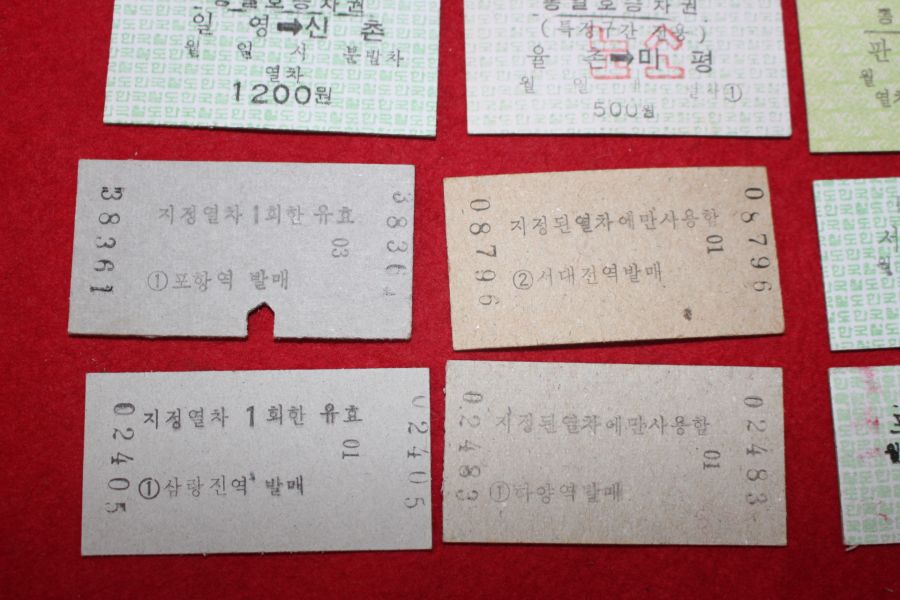 통일호승차권
일 영 ➡ 신 촌
월 일 시 분발차
열차
1200원
통일호승차권
(특정구간 전용)
율 촌 ➡ 마 평
소
월 일
①
500원
판
월
열차
38361
지정열차 1회한 유효
03
①포항역 발매
3836
08796
지정된열차에만사용함
01
②서대전역발매
08796
서
월
02405
지정열차 1회한 유효
01
①삼랑진역 발매
02405
02483
지정된열차에만사용함
01
①하양역발매
02483
월